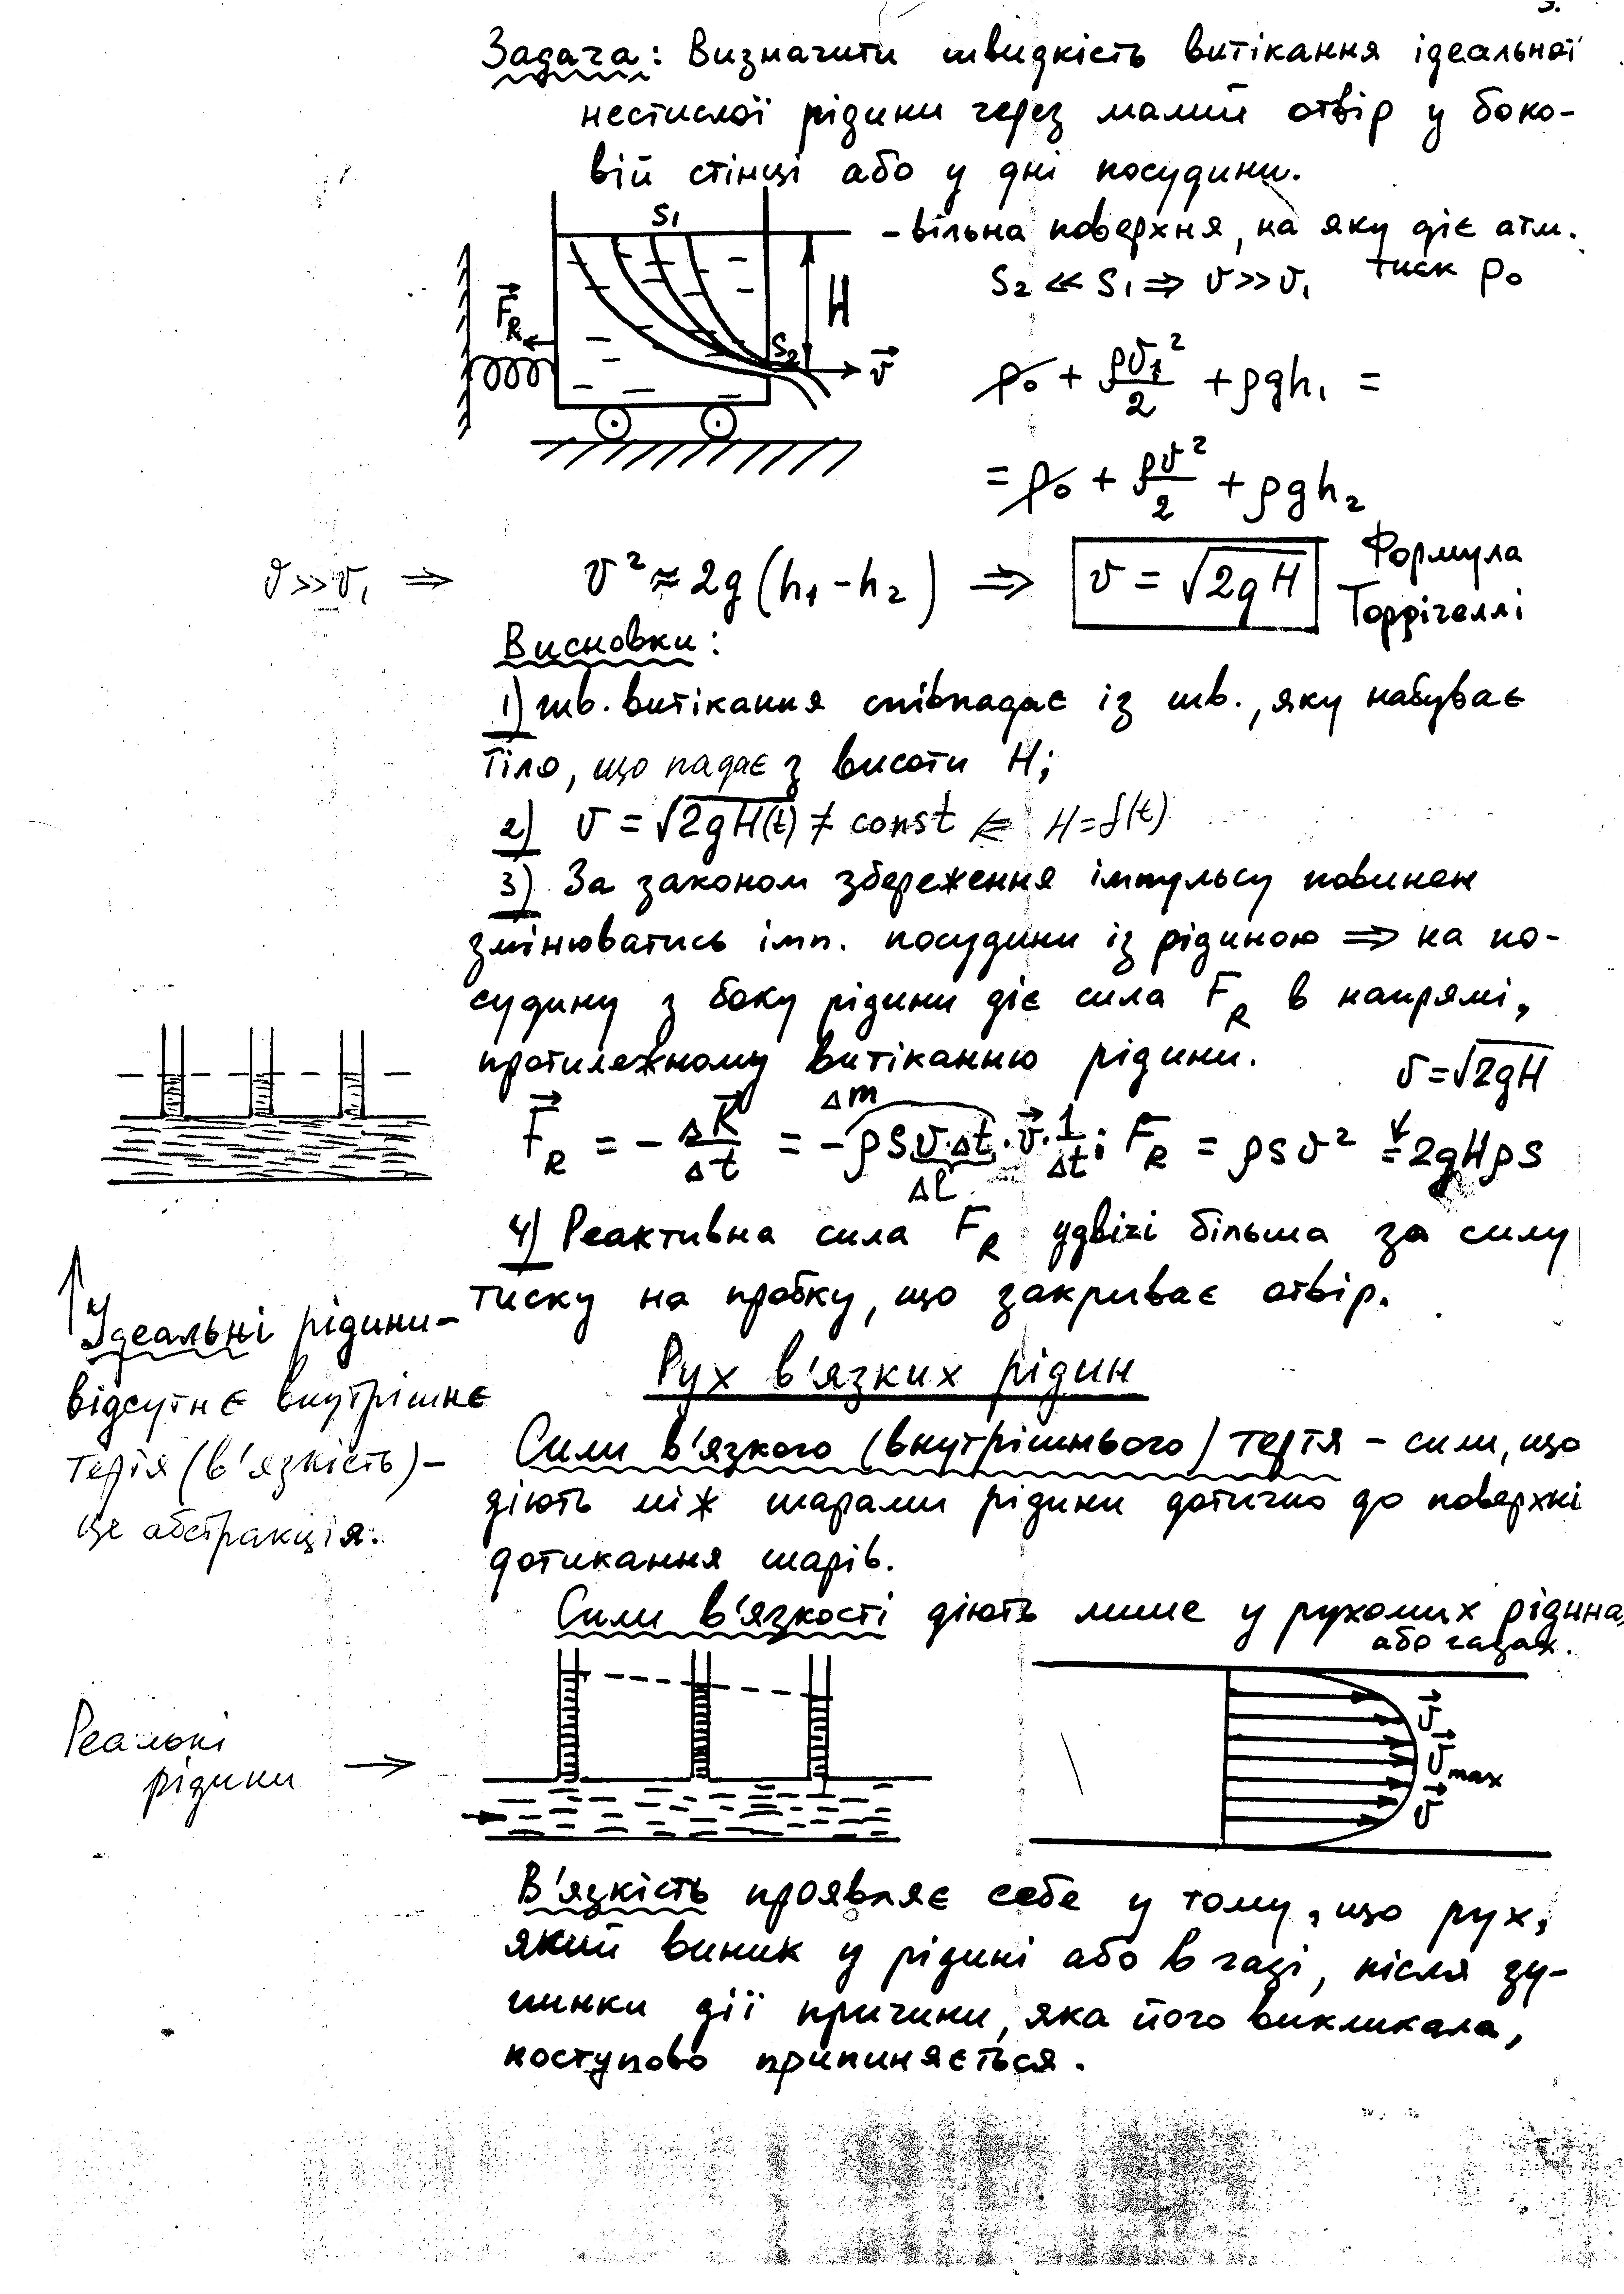 3.
Задача: Визначити швидкість витікання ідеальної
нестислої рідини через малий отвір у боко-
вій стінці або у дні посудини.
S₁
- вільна поверхня, на яку діє атм.
тиск p₀
S₂ << S₁ ⇒ v >> v₁
F⃗_R
H
S₂
v⃗
p₀ + ρv₁²/2 + ρgh₁ =
= p₀ + ρv²/2 + ρgh₂
v >> v₁ ⇒ v² ≈ 2g(h₁ - h₂) ⇒ v = √2gH
Формула
Торрічеллі
Висновки:
1) шв. витікання співпадає із шв., яку набуває
тіло, що падає з висоти H;
2) v = √2gH(t) ≠ const ⇐ H = f(t)
3) За законом збереження імпульсу повинен
змінюватись імп. посудини із рідиною ⇒ на по-
судину з боку рідини діє сила F_R в напрямі,
протилежному витіканню рідини.
v = √2gH
F⃗_R = - ΔK⃗/Δt = - ρSv·Δt · v⃗ · 1/Δt; F_R = ρSv² = 2gHρS
Δm
Δl
4) Реактивна сила F_R удвічі більша за силу
тиску на пробку, що закриває отвір.
Ідеальні рідини -
відсутнє внутрішнє
тертя (в'язкість) -
це абстракція.
Рух в'язких рідин
Сили в'язкого (внутрішнього) тертя - сили, що
діють між шарами рідини дотично до поверхні
дотикання шарів.
Сили в'язкості діють лише у рухомих рідинах
або газах.
Реальні
рідини →
v⃗
v⃗max
v⃗
В'язкість проявляє себе у тому, що рух,
який виник у рідині або в газі, після зу-
пинки дії причини, яка його викликала,
поступово припиняється.